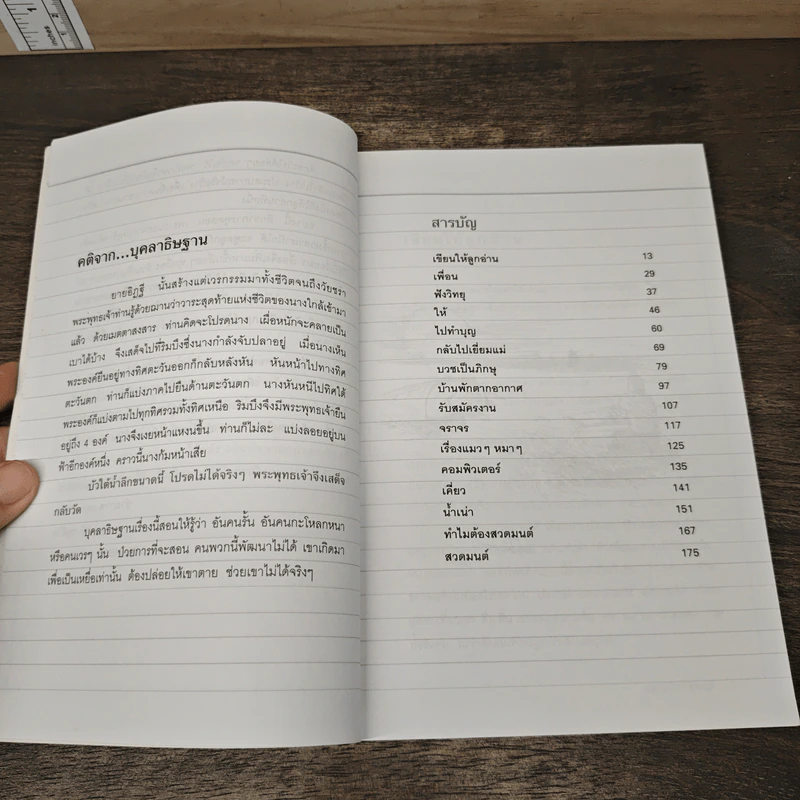 1
2
inches
คติจาก...บุคลาธิษฐาน
ยายอิฏฐี นั้นสร้างแต่เวรกรรมมาทั้งชีวิตจนถึงวัยชรา
พระพุทธเจ้าท่านรู้ด้วยฌานว่าวาระสุดท้ายแห่งชีวิตของนางใกล้เข้ามา
แล้ว ด้วยเมตตาสงสาร ท่านคิดจะโปรดนาง เผื่อหนักจะคลายเป็น
เบาได้บ้าง จึงเสด็จไปที่ริมบึงซึ่งนางกำลังจับปลาอยู่ เมื่อนางเห็น
พระองค์ยืนอยู่ทางทิศตะวันออกก็กลับหลังหัน หันหน้าไปทางทิศ
ตะวันตก ท่านก็แบ่งภาคไปยืนด้านตะวันตก นางหันหนีไปทิศใต้
พระองค์ก็แบ่งตามไปทุกทิศรวมทั้งทิศเหนือ ริมบึงจึงมีพระพุทธเจ้ายืน
อยู่ถึง 4 องค์ นางจึงเงยหน้าแหงนขึ้น ท่านก็ไม่ละ แบ่งลอยอยู่บน
ฟ้าอีกองค์หนึ่ง คราวนี้นางก้มหน้าเสีย
บัวใต้น้ำลึกขนาดนี้ โปรดไม่ได้จริงๆ พระพุทธเจ้าจึงเสด็จ
กลับวัด
บุคลาธิษฐานเรื่องนี้สอนให้รู้ว่า อันคนรั้น อันคนกะโหลกหนา
หรือคนเวรๆ นั้น ป่วยการที่จะสอน คนพวกนี้พัฒนาไม่ได้ เขาเกิดมา
เพื่อเป็นเหยื่อเท่านั้น ต้องปล่อยให้เขาตาย ช่วยเขาไม่ได้จริงๆ
สารบัญ
เขียนให้ลูกอ่าน 13
เพื่อน 29
ฟังวิทยุ 37
ให้ 46
ไปทำบุญ 60
กลับไปเยี่ยมแม่ 69
บวชเป็นภิกษุ 79
บ้านพักตากอากาศ 97
รับสมัครงาน 107
จราจร 117
เรื่องแมวๆ หมาๆ 125
คอมพิวเตอร์ 135
เคี่ยว 141
น้ำเน่า 151
ทำไมต้องสวดมนต์ 167
สวดมนต์ 175